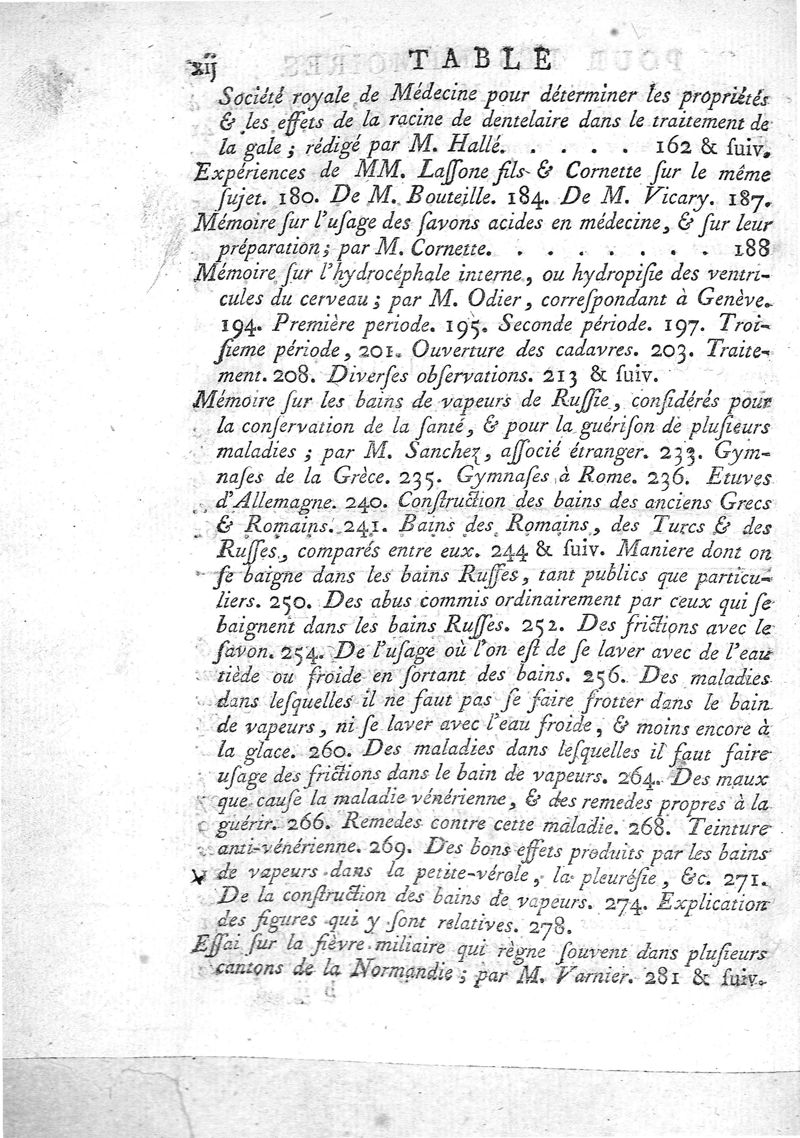 xij TABLE
Société royale de Médecine pour déterminer les propriétés
& les effets de la racine de dentelaire dans le traitement de
la gale ; rédigé par M. Hallé. . . . . 162 & ſuiv.
Expériences de MM. Laſſone fils & Cornette ſur le même
ſujet. 180. De M. Bouteille. 184. De M. Vicary. 187.
Mémoire ſur l'uſage des ſavons acides en médecine, & ſur leur
préparation ; par M. Cornette. . . . . . . . 188
Mémoire ſur l'hydrocéphale interne, ou hydropiſie des ventri-
cules du cerveau ; par M. Odier, correſpondant à Genève.
194. Première periode. 195. Seconde période. 197. Troi-
ſieme période, 201. Ouverture des cadavres. 203. Traite-
ment. 208. Diverſes obſervations. 213 & ſuiv.
Mémoire ſur les bains de vapeurs de Ruſſie, conſidérés pour
la conſervation de la ſanté, & pour la guériſon de pluſieurs
maladies ; par M. Sanchez, aſſocié étranger. 233. Gym-
naſes de la Grèce. 235. Gymnaſes à Rome. 236. Etuves
d'Allemagne. 240. Conſtruction des bains des anciens Grecs
& Romains. 241. Bains des Romains, des Turcs & des
Ruſſes, comparés entre eux. 244 & ſuiv. Maniere dont on
ſe baigne dans les bains Ruſſes, tant publics que particu-
liers. 250. Des abus commis ordinairement par ceux qui ſe
baignent dans les bains Ruſſes. 252. Des frictions avec le
ſavon. 254. De l'uſage où l'on eſt de ſe laver avec de l'eau
tiède ou froide en ſortant des bains. 256. Des maladies
dans leſquelles il ne faut pas ſe faire frotter dans le bain
de vapeurs, ni ſe laver avec l'eau froide, & moins encore à
la glace. 260. Des maladies dans leſquelles il faut faire
uſage des frictions dans le bain de vapeurs. 264. Des maux
que cauſe la maladie vénérienne, & des remedes propres à la
guérir. 266. Remedes contre cette maladie. 268. Teinture
anti-vénérienne. 269. Des bons effets produits par les bains
de vapeurs dans la petite-vérole, la pleuréſie, &c. 271.
De la conſtruction des bains de vapeurs. 274. Explication
des figures qui y ſont relatives. 278.
Eſſai ſur la fièvre miliaire qui règne ſouvent dans pluſieurs
cantons de la Normandie ; par M. Varnier. 281 & ſuiv.